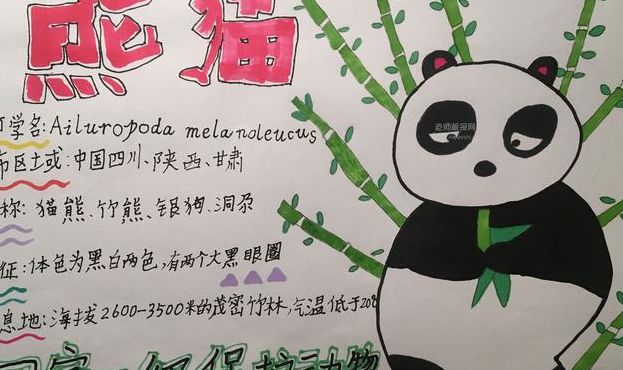 熊猫
学名:Ailuropoda melanoleucus
布区土或:中国四川、陕西、甘肃
称:猫熊、竹熊、银狗、洞尕
征:体色为黑白两色,有两个大黑眼圈
息地:海拔2600-3500米的茂密竹林,气温低于20
国家一级保护动物
老师板报网